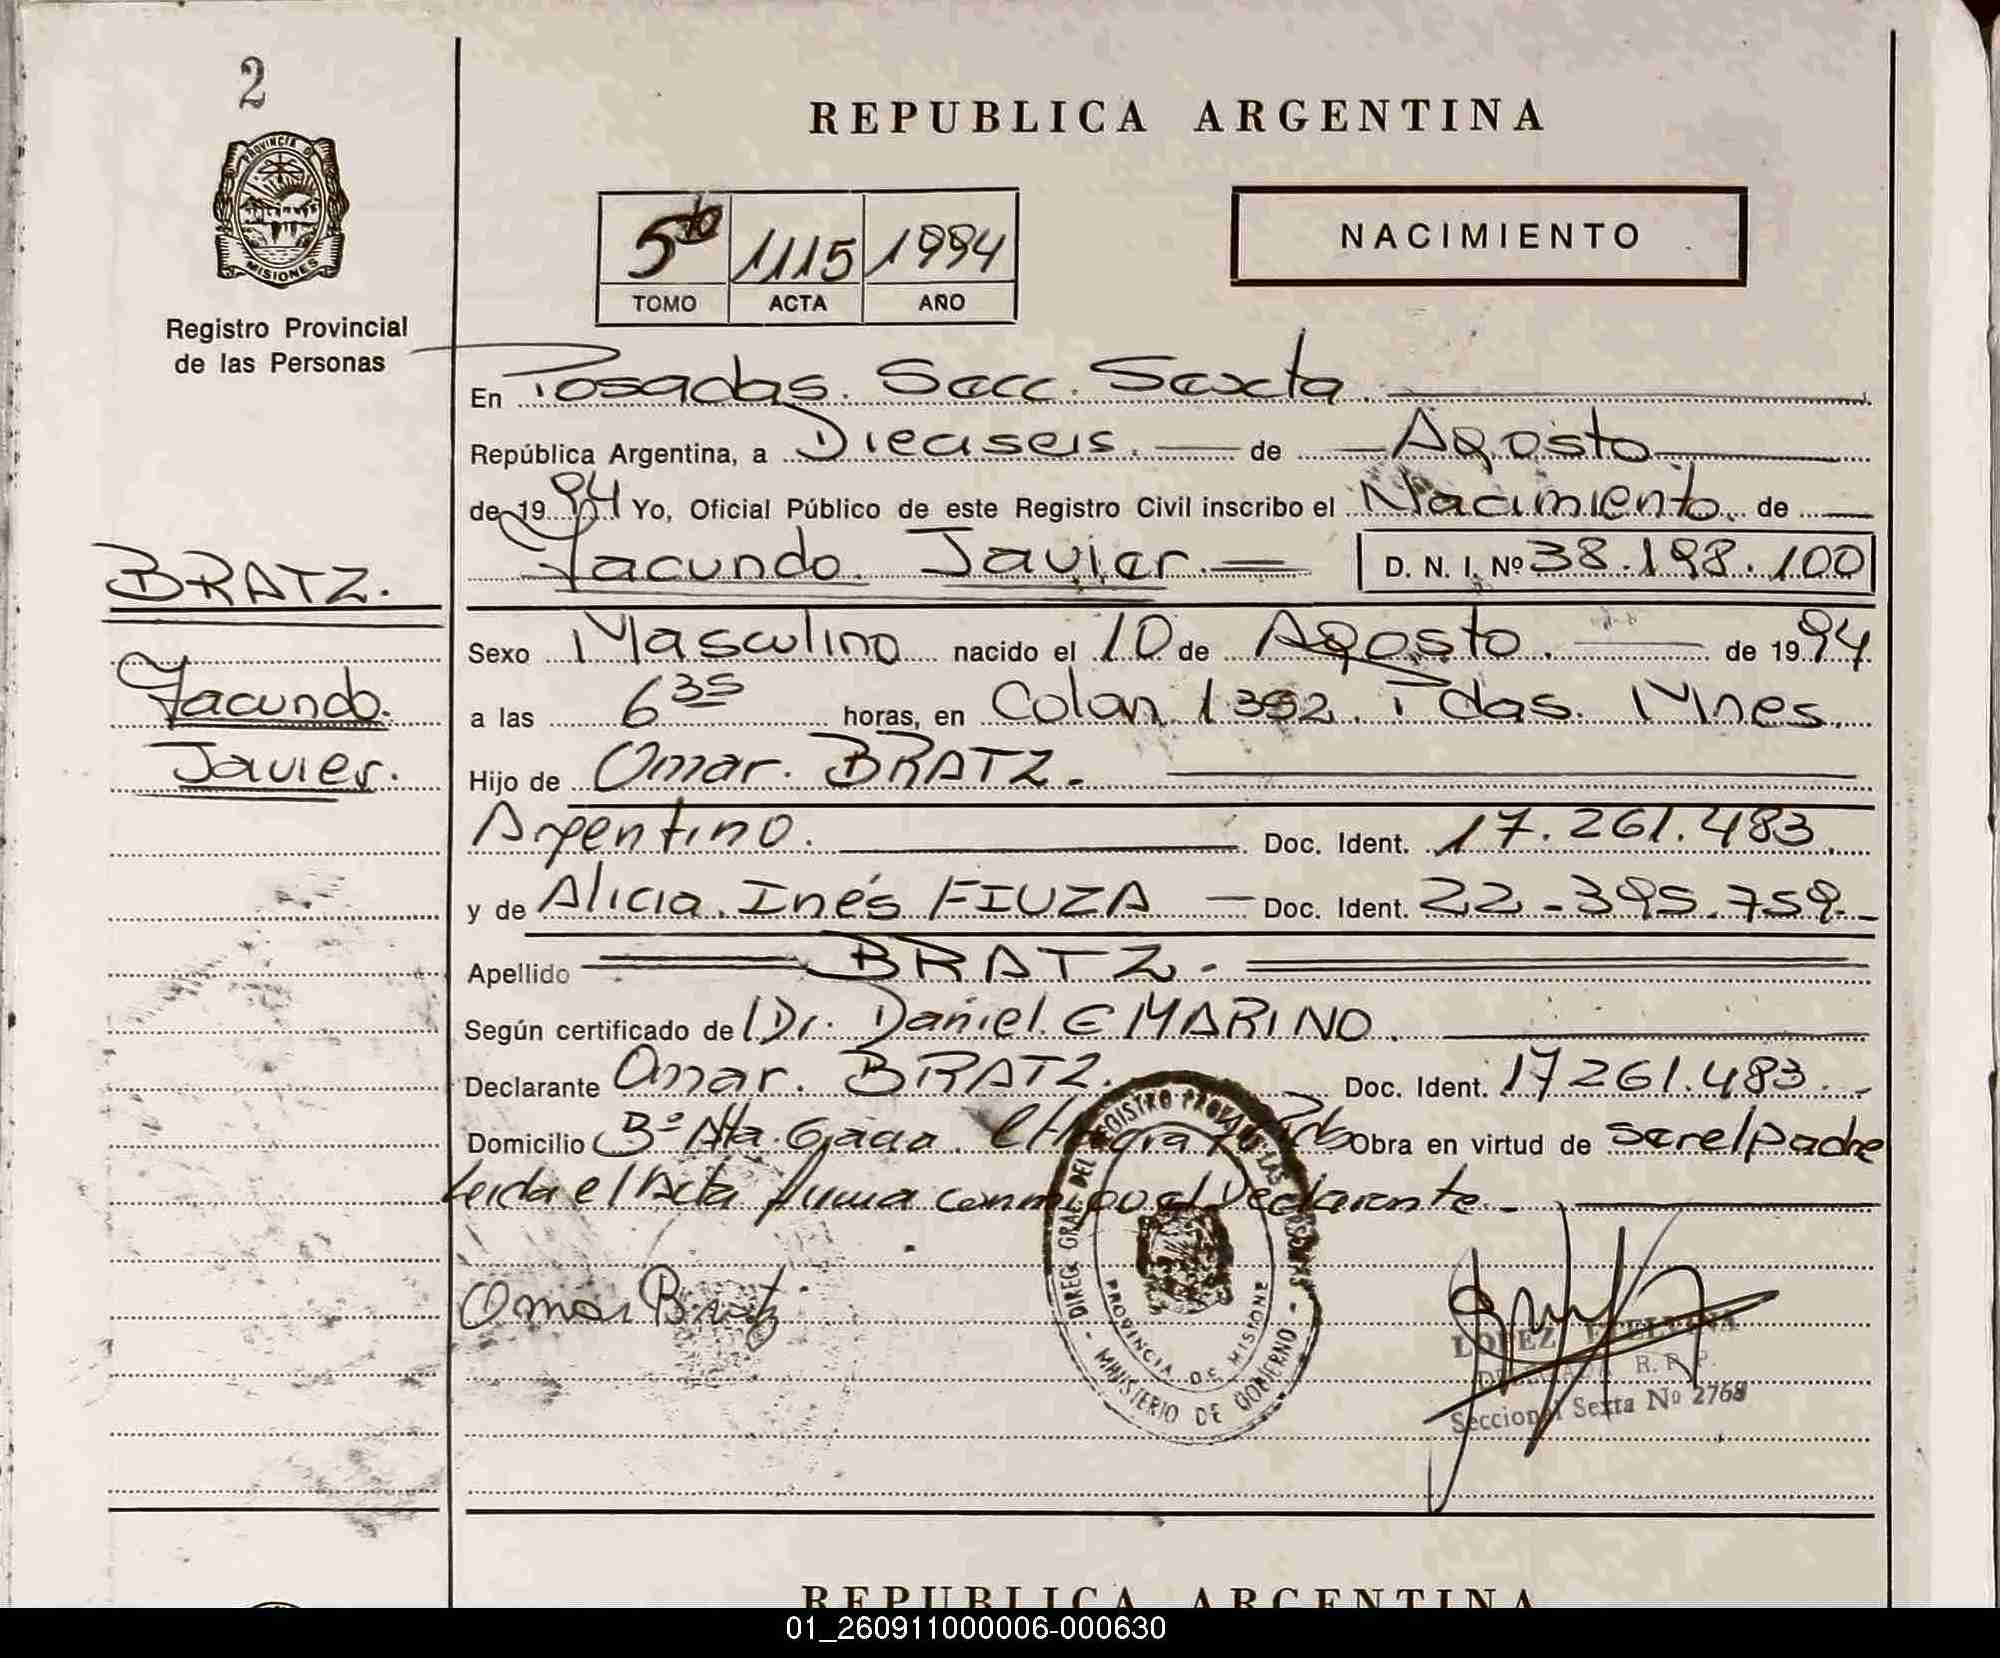 2
REPUBLICA ARGENTINA
PROVINCIA DE
MISIONES
Registro Provincial
de las Personas
5to 1115 1994
TOMO ACTA AÑO
NACIMIENTO
En Posadas. Secc. Sexta
República Argentina, a Dieciseis. de Agosto
de 1994 Yo, Oficial Público de este Registro Civil inscribo el Nacimiento de
Facundo Javier D. N. I. Nº 38.198.100
BRATZ.
Facundo.
Javier.
Sexo Masculino nacido el 10 de Agosto. de 1994
a las 6 35 horas, en Colon 1392. Pdas. Mnes.
Hijo de Omar. BRATZ.
Argentino. Doc. Ident. 17.261.483
y de Alicia Inés FIUZA Doc. Ident. 22-395.759
Apellido BRATZ.
Según certificado de Dr. Daniel E MARINO
Declarante Omar. BRATZ. Doc. Ident. 17261.483
Domicilio Bº Alta Gracia Obra en virtud de ser el padre
Leida el Acta firma conmigo el Declarante.
DIREC. GRAL. DEL REGISTRO PROV. DE LAS PERSONAS
PROVINCIA DE MISIONES
MINISTERIO DE GOBIERNO
Omar Bratz
LOPEZ ETELVINA
R. P. P.
Seccional Sexta Nº 2768
REPUBLICA ARGENTINA
01_260911000006-000630